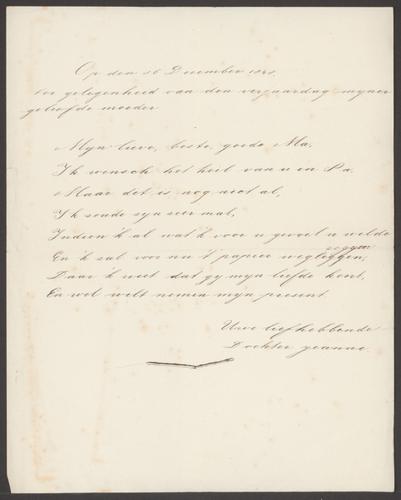 Op den 16 December
ter gelegenheid van den verjaardag myner
geliefde moeder
Myn lieve, beste, goede Ma,
Ik wensch het heil van u en Pa.
Maar dit is nog niet al,
Ik soude syn seer mal,
Indien 'k al wat 'k voor u gevoel u wilde
seggen
En 'k sal voor nu 't papier wegleggen,
Daar 'k weet dat gy myn liefde kent,
En wel wilt nemen myn present.
Uwe liefhebbende
Dochter Jeanne.